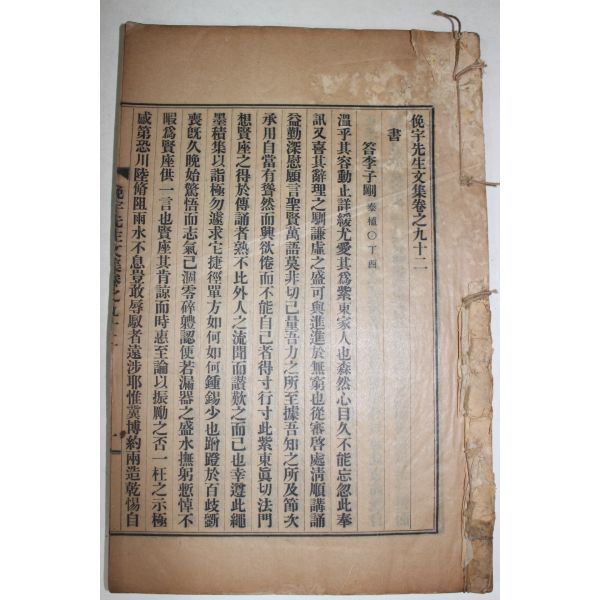 俛宇先生文集卷之九十二
書
答李子剛 泰植○丁酉
溫乎其容動止詳緩尤愛其爲紫東家人也森然心目久不能忘忽此奉
訊又喜其辭理之馴謙虛之盛可與進進於無窮也從審啓處淸順講誦
益勤深慰願言聖賢萬語莫非切己量吾力之所至據吾知之所及節次
承用自當有聳然而興欲倦而不能自已者得寸行寸此紫東眞切法門
想賢座之得於傳誦者熟不比外人之流聞而讚歎之而已也幸遵此繩
墨積集以詣極勿遽求它捷徑單方如何如何鍾錫少也蹭蹬於百歧斲
喪旣久晩始驚悟而志氣已凅零碎軆認便若漏器之盛水撫躬慙悼不
暇爲賢座供一言也賢座其肯諒而時惠至論以振勵之否一枉之示極
感第恐川陸脩阻雨水不息豈敢辱馭者遠涉耶惟冀博約兩造乾惕自
俛宇先生文集卷之九十二
一